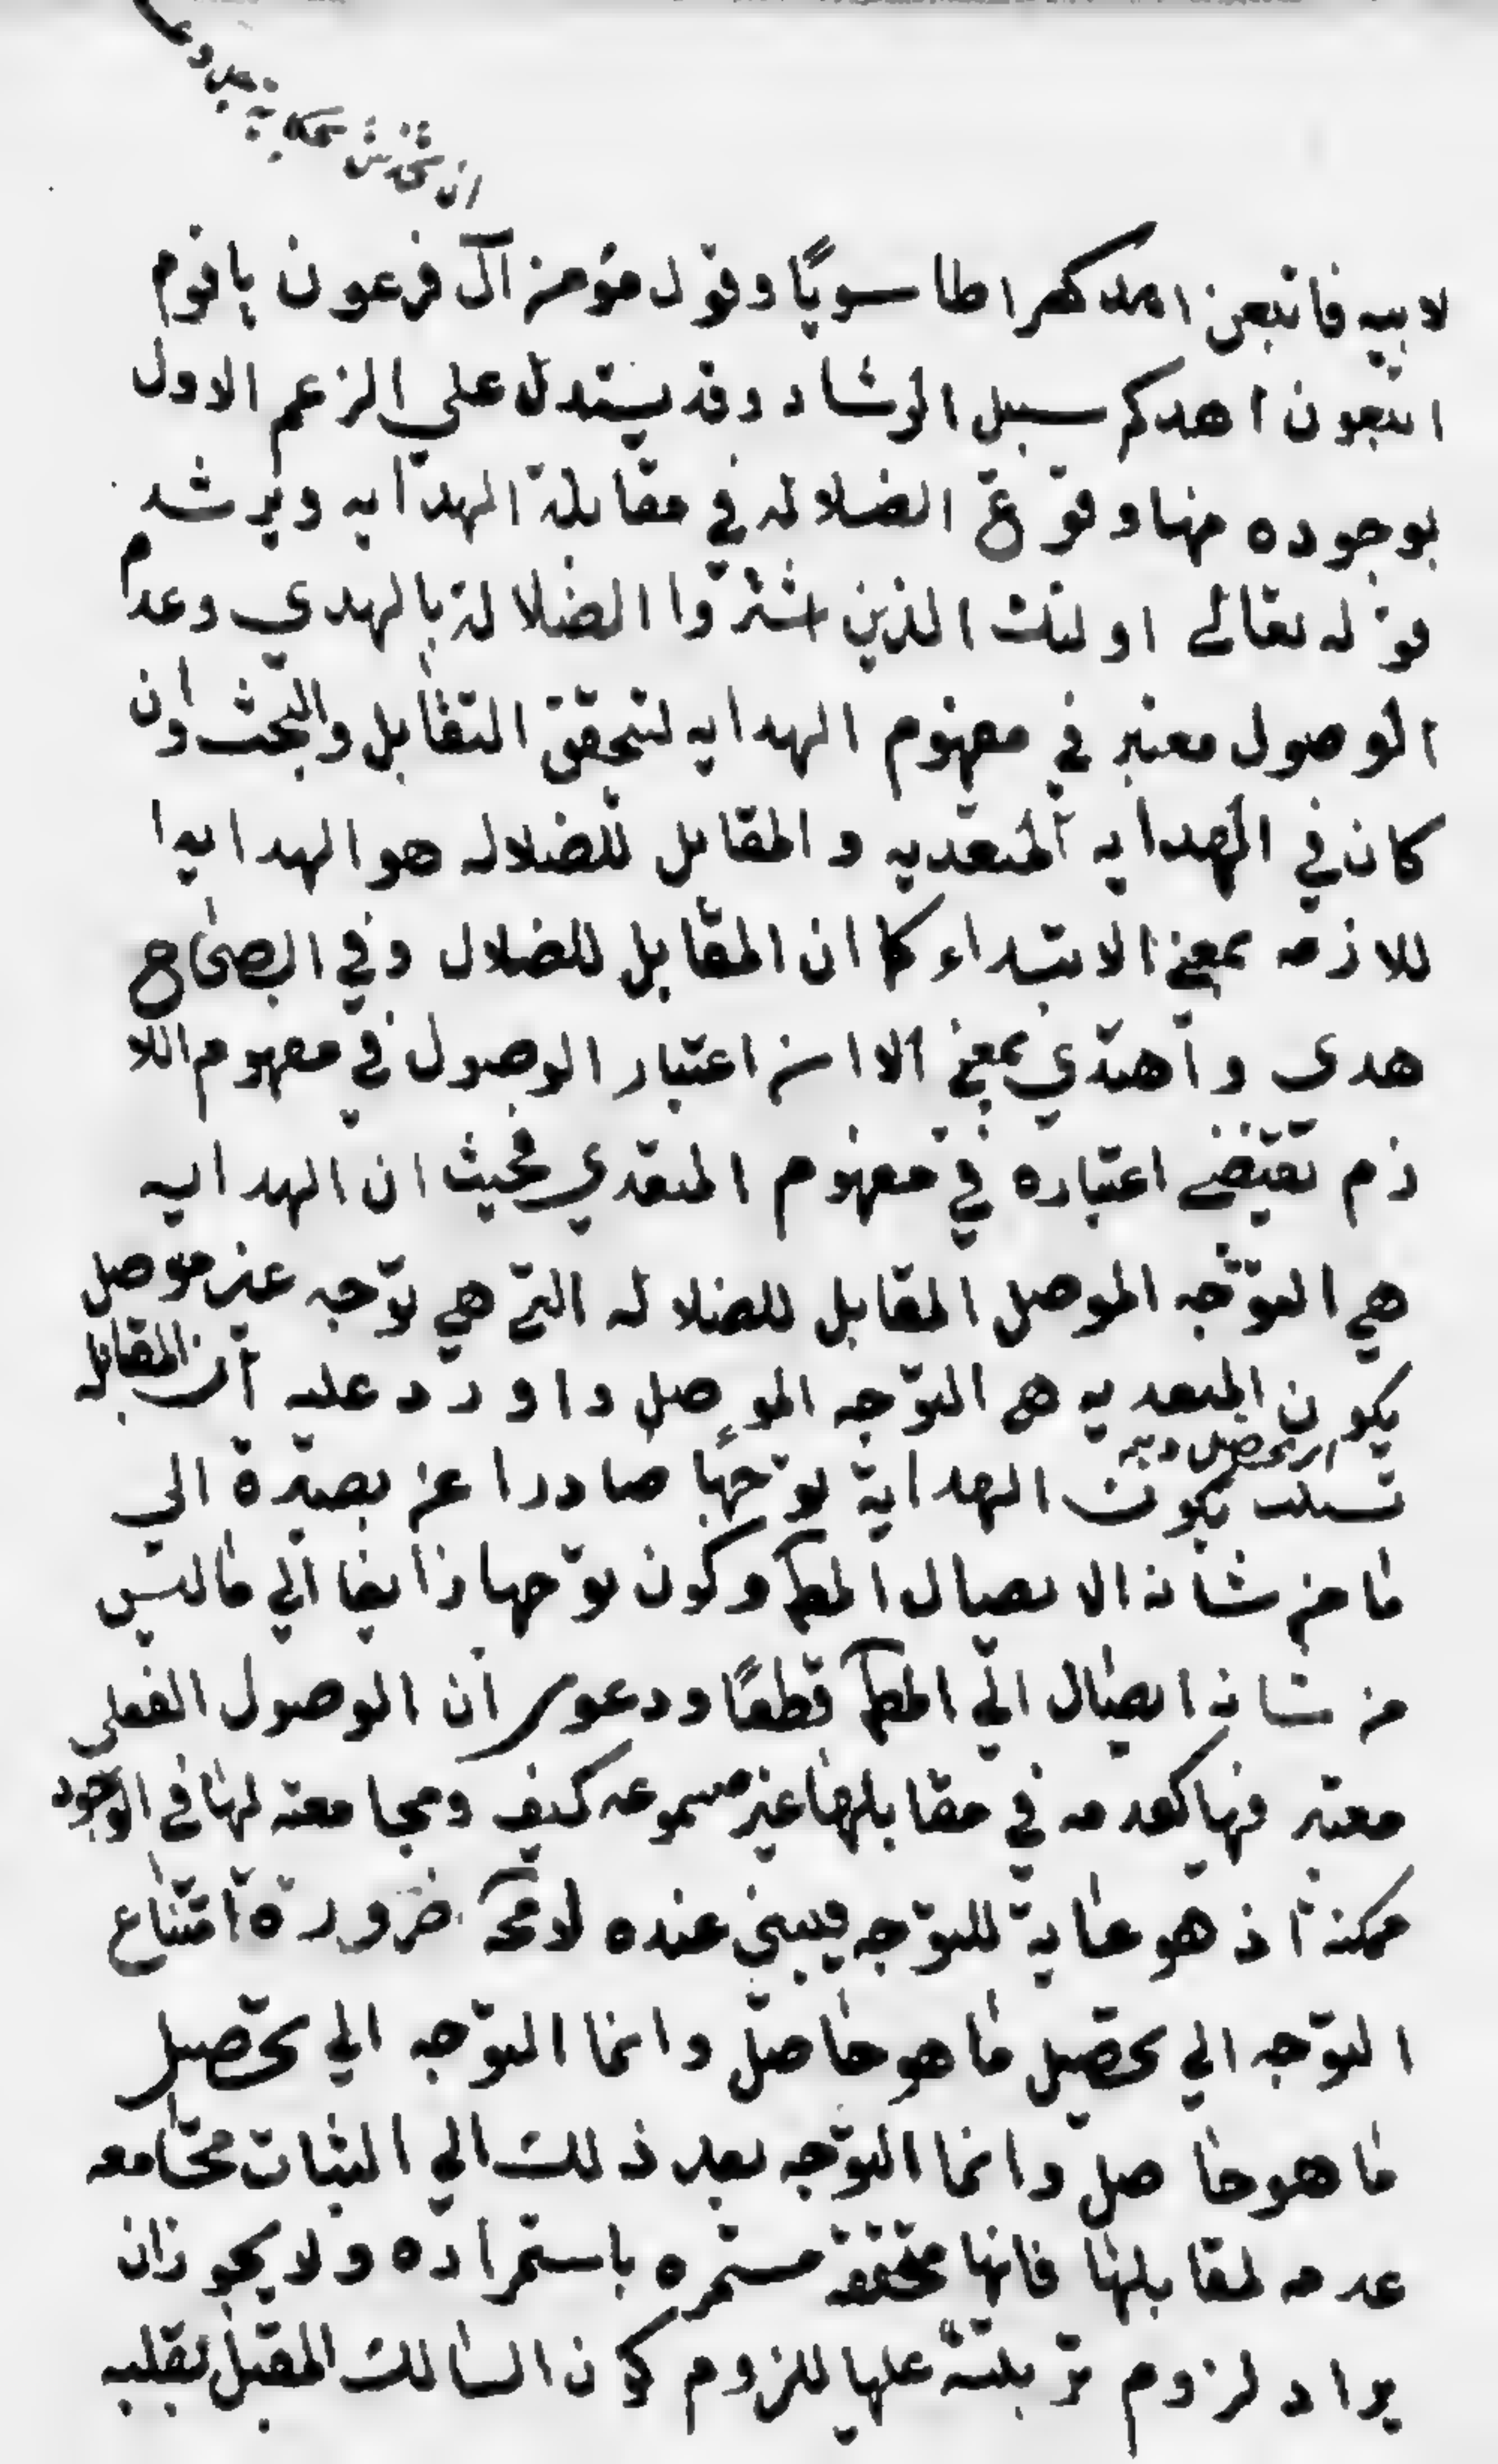 لابيه فاتبعن اهدك صراطا سويًا وقول مؤمن آل فرعون ياقوم
اتبعون اهدكم سبيل الرشاد وقد يستدل علي الزعم الاول
بوجوه منها وقوع الضلاله في مقابلة الهدايه ويرشد
قوله تعالي اولئك الذين اشتروا الضلالة بالهدي وعدم
الوصول معتبر في مفهوم الهدايه لتحقق التقابل والبحث ان
كان في الهدايه المتعديه والمقابل للضلاله هو الهدايه ا
للازمه بمعني الاهتداء كما ان المقابل للضلال وفي الصحاح
هدى واهتدي بمعني الا ان اعتبار الوصول في مفهوم اللا
زم تقتضي اعتباره في مفهوم المتعدي فحيث ان الهدايه
هي التوجه الموصل المقابل للضلاله التي هي توجه غير موصل
يكون المتعديه هي التوجه الموصل واورد عليه ان المقابله
تكون الهداية توجها صادرا عن بصيرة الي
ما من شانه الايصال المط وكون توجها زايغا الي ما ليس
من شانه ايصال الي المط قطعًا ودعوى ان الوصول الفعلي
معتبر فيها كعدمه في مقابلها غير مسموعه كيف ومجامعته لها في الوجود
ممكنة اذ هو غاية للتوجه عنده لامحة ضرورة امتناع
التوجه الي تحصيل ما هو حاصل وانما التوجه الي تحصيل
ما هو حاصل وانما التوجه بعد ذلك الي الثبات مجامعه
عدمه لمقابلها فانها محققه مستمره باستمراره ولا يجوز ان
يراد لزوم ترتبه عليها للزوم كون السالك المقبل بقلبه